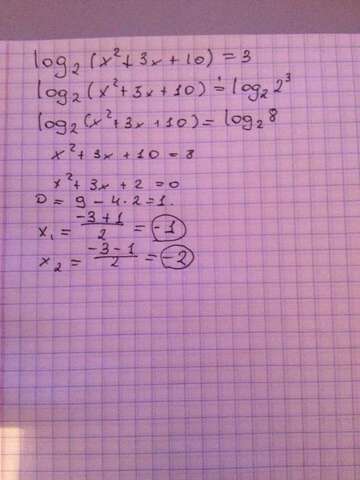 log₂(x²+3x+10)=3
log₂(x²+3x+10)=log₂2³
log₂(x²+3x+10)=log₂8
x²+3x+10=8
x²+3x+2=0
D=9-4·2=1.
x₁=\frac{-3+1}{2}=-1
x₂=\frac{-3-1}{2}=-2